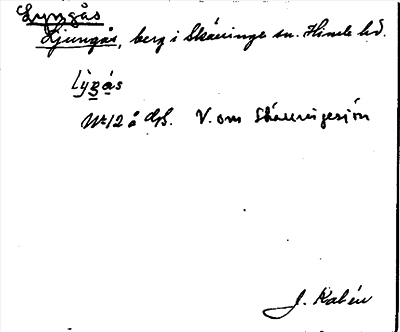 Lyngås
Ljungås, berg i Skällinge sn. Himle hd.
lyŋås
Nr 12 å gfs. V. om Skällingesjön
J. Kalén